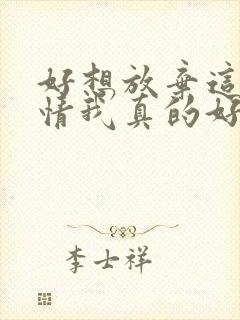 好想放棄這
情我真的好
李士祥